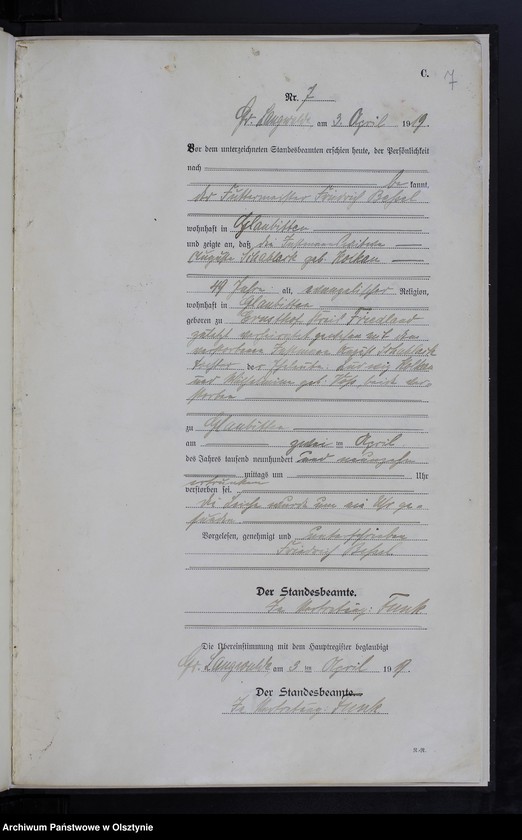 C. 7
Nr. 7
Gr. Langwalde am 3. April 1919.
Vor dem unterzeichneten Standesbeamten erschien heute, der Persönlichkeit
nach
be kannt,
der Futtermeister Friedrich Bessel
wohnhaft in Glaubitten
und zeigte an, daß die
Auguste Schablack geb.
49 Jahre alt, evangelischer Religion,
wohnhaft in Glaubitten
geboren zu Ernsthof Kreis Friedland
zuletzt verheiratet gewesen mit dem
verstorbenen Instmann August Schablack
Tochter der Eheleute: Ludwig
und Wilhelmine geb. beide ver-
storben
zu Glaubitten
am zwei ten April
des Jahres tausend neunhundert und neunzehn
mittags um Uhr
ertrunken
verstorben sei.
Die Leiche wurde um ein Uhr ge-
funden
Vorgelesen, genehmigt und unterschrieben
Friedrich Bessel
Der Standesbeamte.
In Vertretung: Funk
Die Übereinstimmung mit dem Hauptregister beglaubigt
Gr. Langwalde am 3 ten April 1919.
Der Standesbeamte.
In Vertretung: Funk.
Archiwum Państwowe w Olsztynie